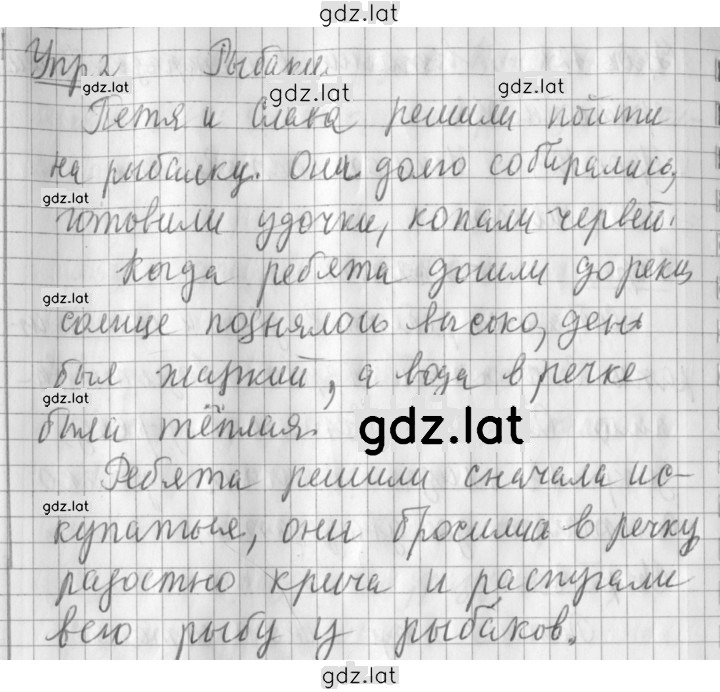 gdz.lat
Упр 2 Рыбаки
gdz.lat gdz.lat gdz.lat
Петя и Слава решили пойти
на рыбалку. Они долго собирались,
gdz.lat
готовили удочки, копали червей.
Когда ребята дошли до реки
gdz.lat
солнце поднялось высоко, день
был жаркий, а вода в речке
gdz.lat
была тёплая. gdz.lat
Ребята решили сначала ис-
gdz.lat
купаться, они бросились в речку
радостно крича и распугали
gdz.lat
всю рыбу у рыбаков.
gdz.lat